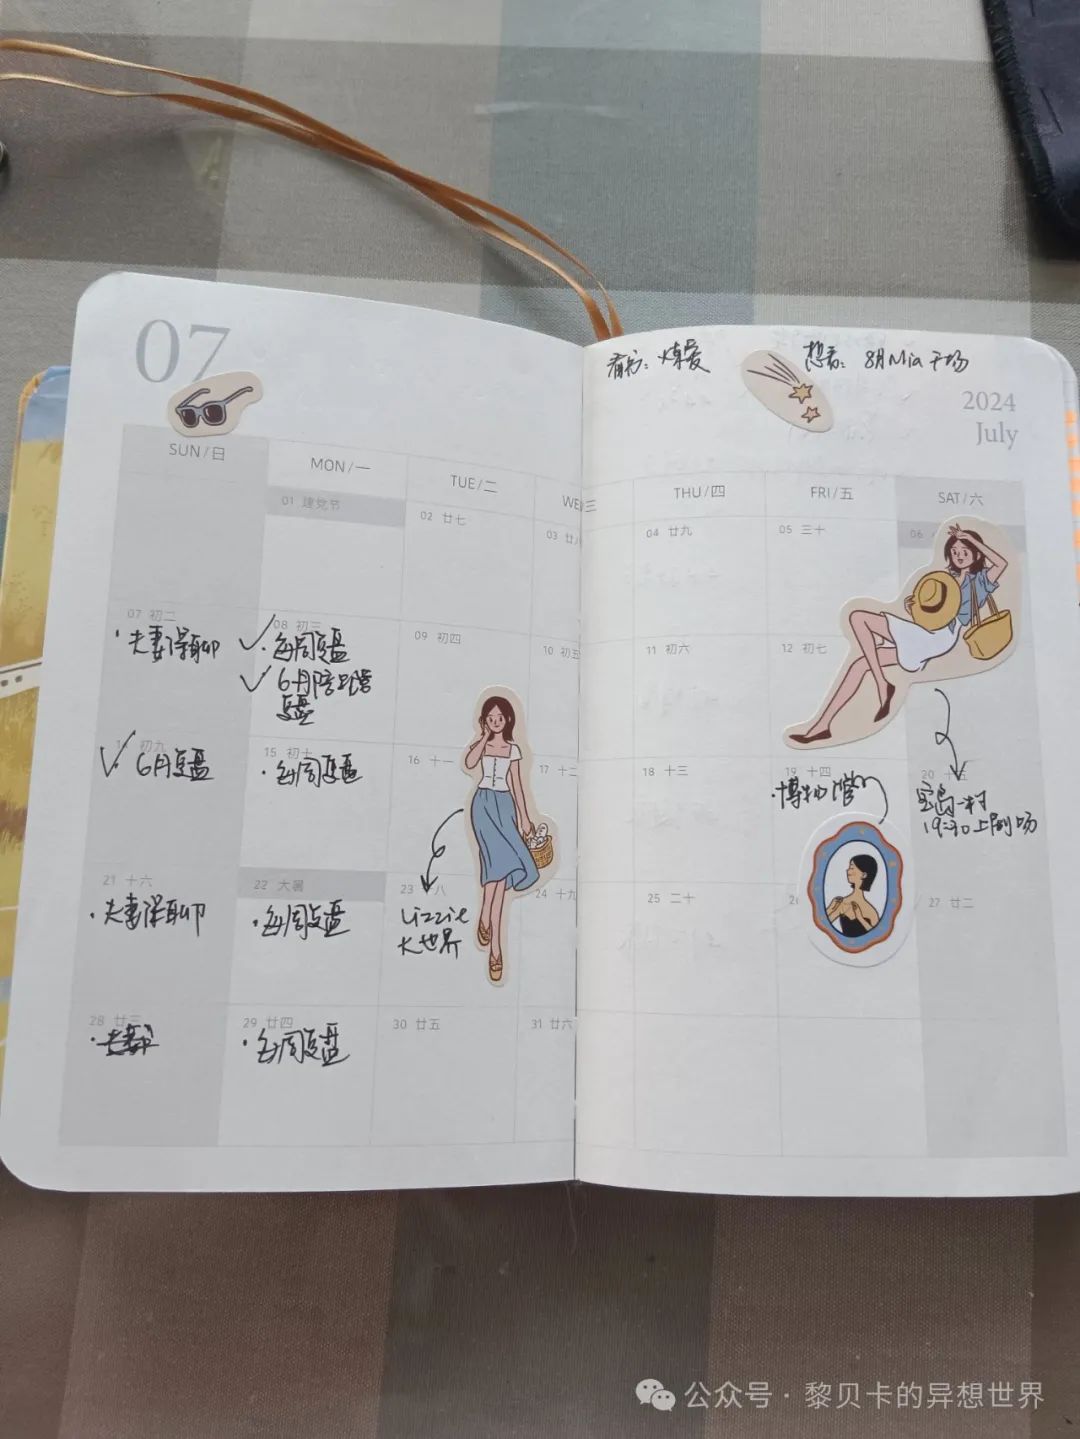 07
看书：炼爱
想看：8月Mia干场
2024
July
SUN/日
MON/一
TUE/二
WE 三
THU/四
FRI/五
SAT/六
01 建党节
02 廿七
03 廿八
04 廿九
05 三十
06
07 初二
08 初三
09 初四
10 初五
11 初六
12 初七
·夫妻深聊
✓·每周复盘
✓·6月陪跑营
复盘
初九
15 初十
16 十一
17 十二
18 十三
19 十四
20 十五
✓·6月复盘
·每周复盘
·博物馆
宝岛一村
19:30上剧场
21 十六
22 大暑
23 八
24 十九
25 二十
26
27 廿二
·夫妻深聊
·每周复盘
Lizzie
大世界
28 廿三
29 廿四
30 廿五
31 廿六
·每周复盘
公众号·黎贝卡的异想世界